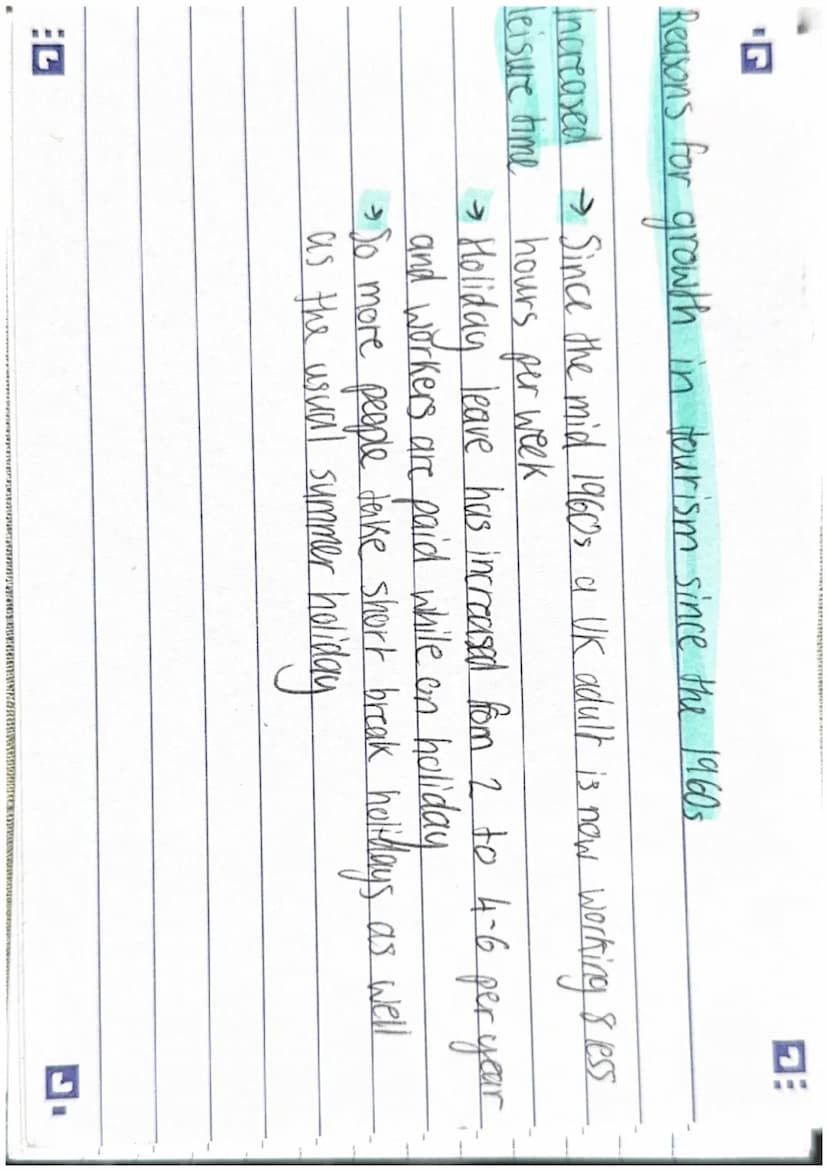 Reasons for growth in tourism since the 1960s
Increased → Since the mid 1960s a UK adult is now working 8 less
leisure time hours per week
→ Holiday leave has increased from 2 to 4-6 per year
and workers are paid while on holiday
→ So more people take short break holidays as well
as the usual summer holiday